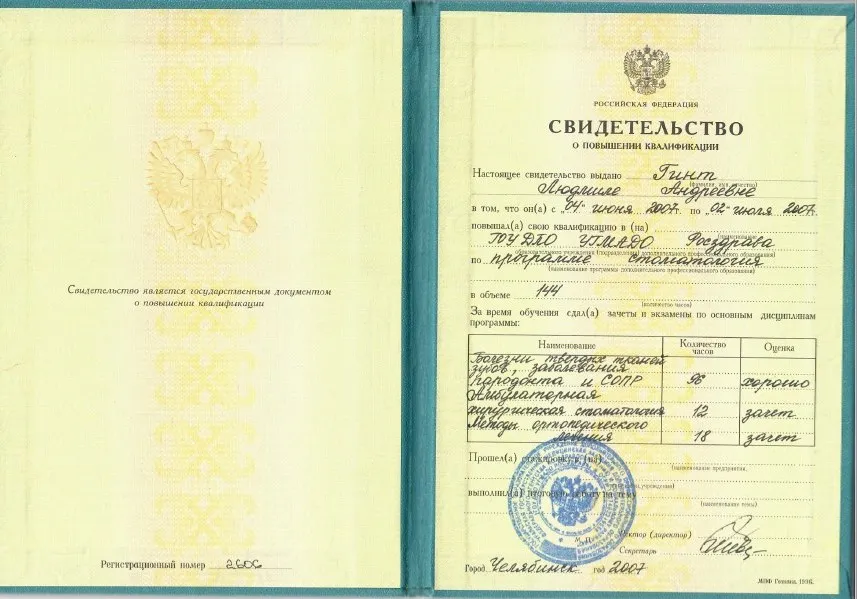 Свидетельство является государственным документом
о повышении квалификации
Регистрационный номер 2606
РОССИЙСКАЯ ФЕДЕРАЦИЯ
СВИДЕТЕЛЬСТВО
О ПОВЫШЕНИИ КВАЛИФИКАЦИИ
Настоящее свидетельство выдано Гинт
Людмиле Андреевне
(фамилия, имя, отчество)
в том, что он(а) с „04“ июня 2007г. по „02“ июля 2007г.
повышал(а) свою квалификацию в (на)
ГОУ ДПО УГМАДО Росздрава
(наименование)
образовательного учреждения (подразделения) дополнительного профессионального образования)
по программе стоматология
(наименование программы дополнительного профессионального образования)
в объеме 144
(количество часов)
За время обучения сдал(а) зачеты и экзамены по основным дисциплинам
программы:
Наименование Количество часов Оценка
Болезни твердых тканей
зубов, заболевания
пародонта и СОПР 96 хорошо
Амбулаторная
хирургическая стоматология 12 зачет
Методы ортопедического
лечения 18 зачет
Прошел(а) стажировку в (на)
(наименование предприятия,
учреждения)
выполнил(а) итоговую работу на тему
(наименование темы)
М.П.
Ректор (директор)
Секретарь
Город Челябинск год 2007
МПФ Гознака. 1996.